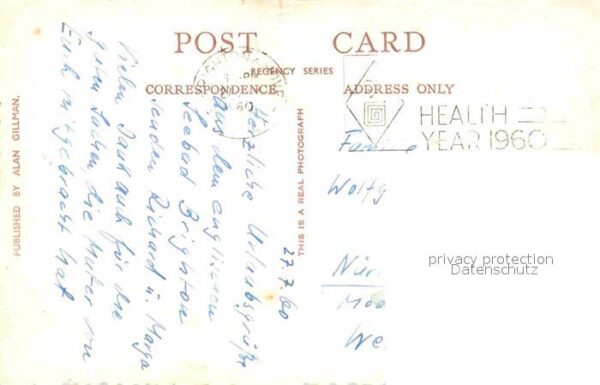 POST CARD
REGENCY SERIES
CORRESPONDENCE
ADDRESS ONLY
PUBLISHED BY ALAN GILLMAN.
THIS IS A REAL PHOTOGRAPH
60
HEALTH
YEAR 1960
27.7.60
Herzliche Urlaubsgrüße
aus dem englischen
Seebad Brighton
senden Richard u. Marga
Vielen Dank auch für die
guten Sachen die Mutter von
Euch mitgebracht hat
Wolfg
Nür
Moo
We
privacy protection
Datenschutz